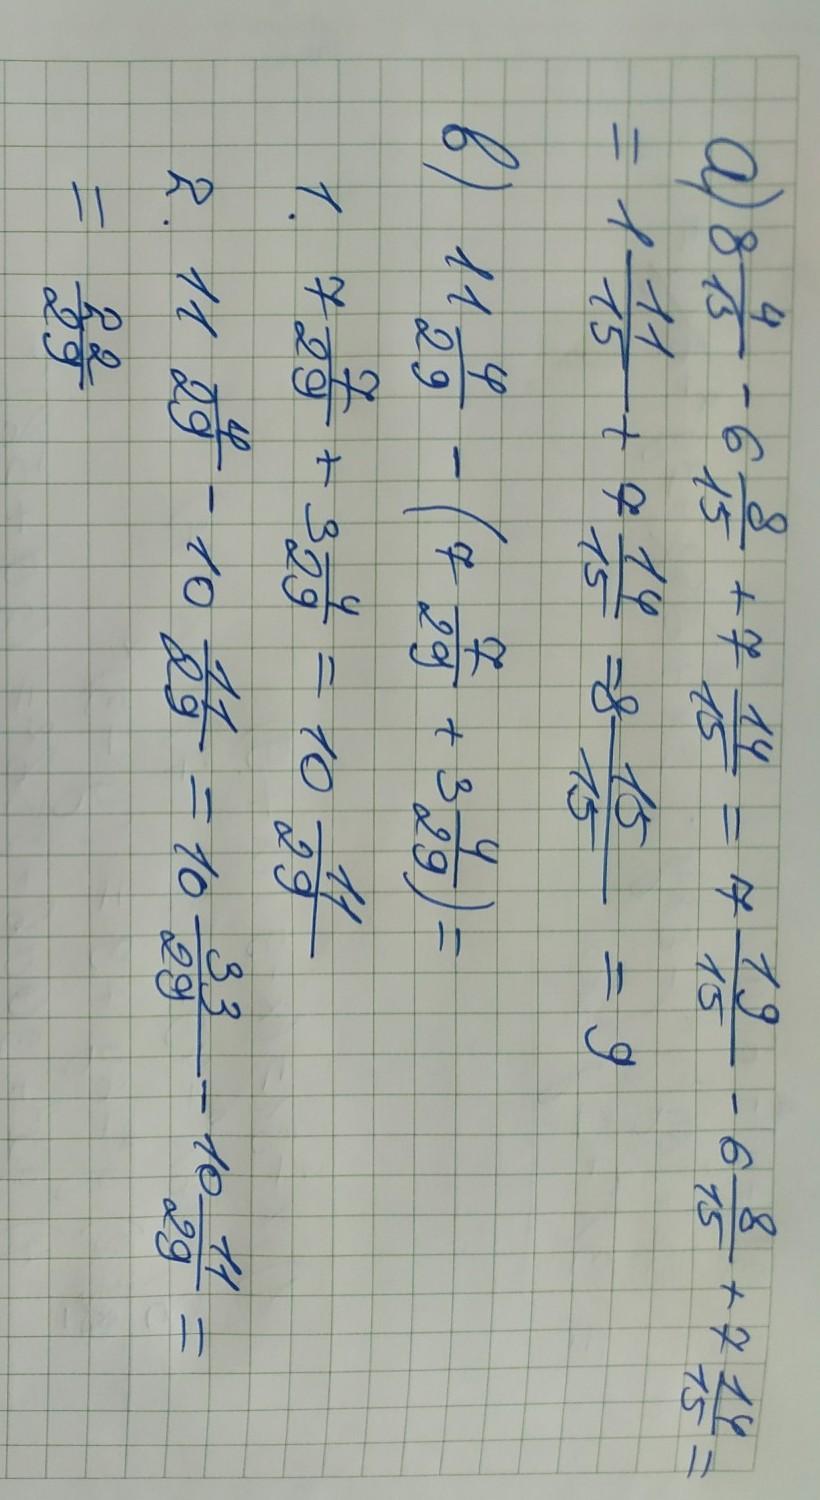 а) 8 4/15 - 6 8/15 + 7 14/15 = 7 19/15 - 6 8/15 + 7 14/15 =
= 1 11/15 + 7 14/15 = 8 15/15 = 9
в) 11 4/29 - (7 7/29 + 3 4/29) =
1. 7 7/29 + 3 4/29 = 10 11/29
2. 11 4/29 - 10 11/29 = 10 33/29 - 10 11/29 =
= 22/29